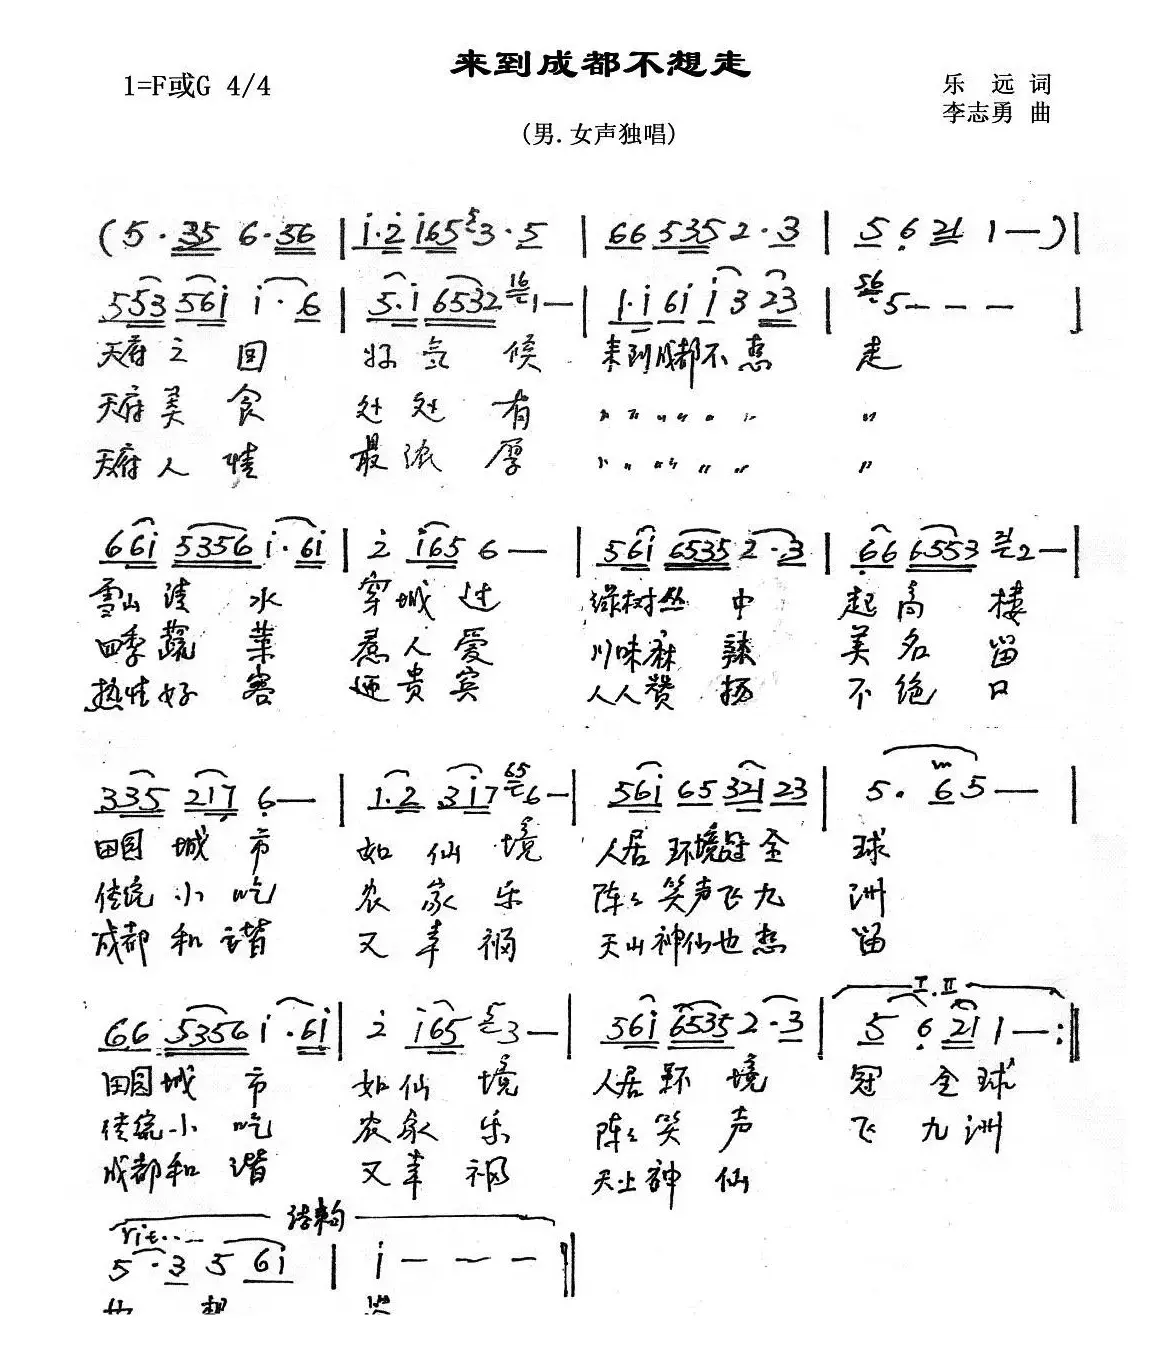 来到成都不想走
1=F或G 4/4
乐 远 词
李志勇 曲
(男.女声独唱)
(5·35 6·56 | i·2 i65 5 3·5 | 66 535 2·3 | 5 6 21 1—)|
553 56i i·6 | 5·i 6532 16 1— | 1·i 6i i3 23 | 56 5— — — ]
天府之国 好气候 来到成都不想 走
天府美食 处处有 〃〃〃〃〃〃 〃
天府人情 最浓厚 〃〃〃〃〃〃 〃
66i 5356 i·6i | 2 i65 6— | 56i 6535 2·3 | 66 6553 3 2—|
雪山清水 穿城过 绿树丛中 起高楼
四季蔬菜 惹人爱 川味麻辣 美名留
热情好客 迎贵宾 人人赞扬 不绝口
335 217 6— | 1·2 3i7 65 6—| 56i 65 321 23 | 5· 65— |
田园城市 如仙境 人居环境冠全 球
传统小吃 农家乐 阵々笑声飞九 洲
成都和谐 又幸福 天山神仙也想 留
66 5356 i·6i| 2 i65 5 3—| 56i 6535 2·3 | 5 6 21 1—:‖
I.II
田园城市 如仙境 人居环境 冠全球
传统小吃 农家乐 阵々笑声 飞九洲
成都和谐 又幸福 天上神仙
结束句
rit...
5·3 5 6i | i — — — ‖
也 想 留